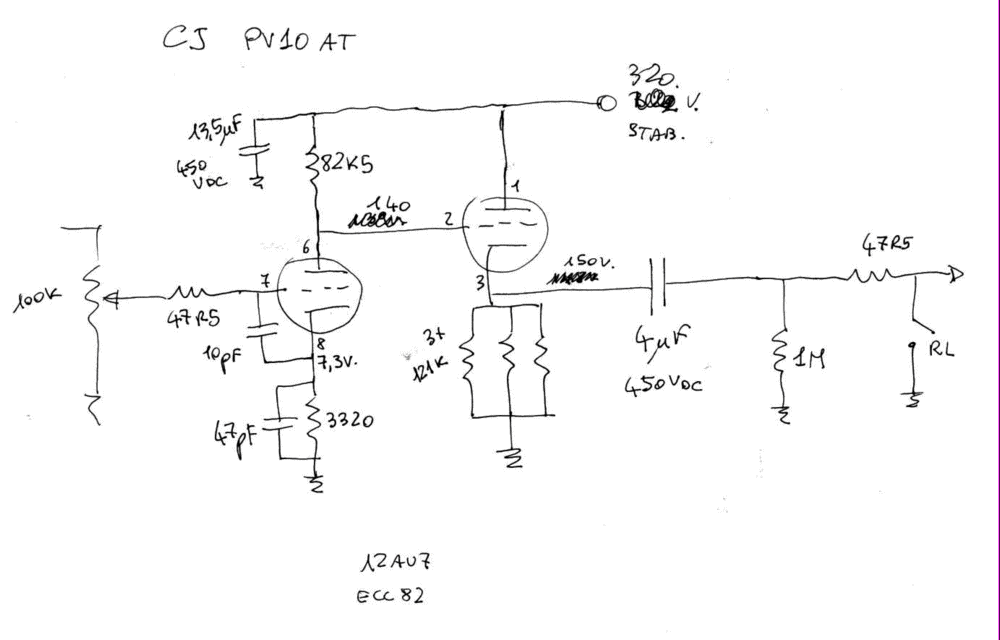 CJ PV10 AT
320.
V.
STAB.
13,5µF
450
VDC
82K5
140
1
2
6
7
150V.
3
47R5
100K
47R5
10pF
8
7,3V.
3+
121K
4µF
450VDC
1M
RL
47pF
3320
12AU7
ECC82